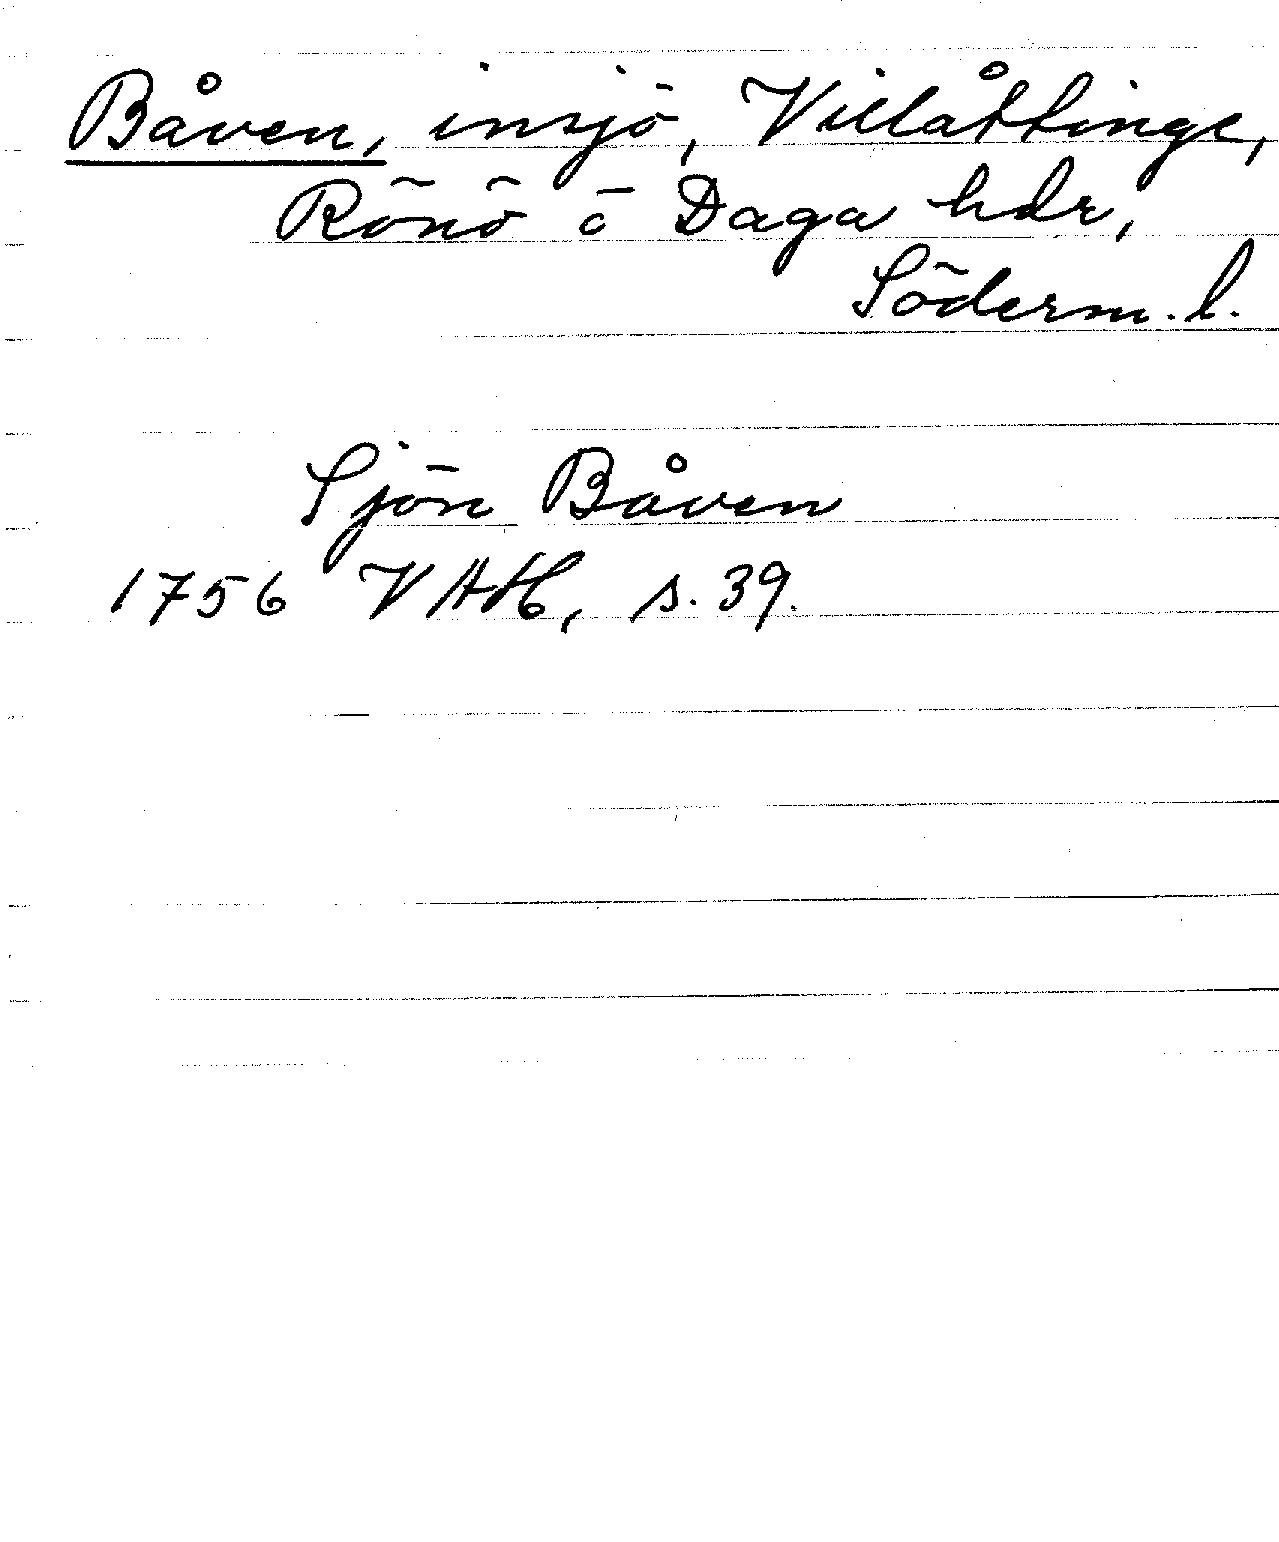 Båven, insjö, Villåttinge,
Rönö o Daga hdr,
Söderm. l.
Sjön Båven
1756 VAH, s. 39.